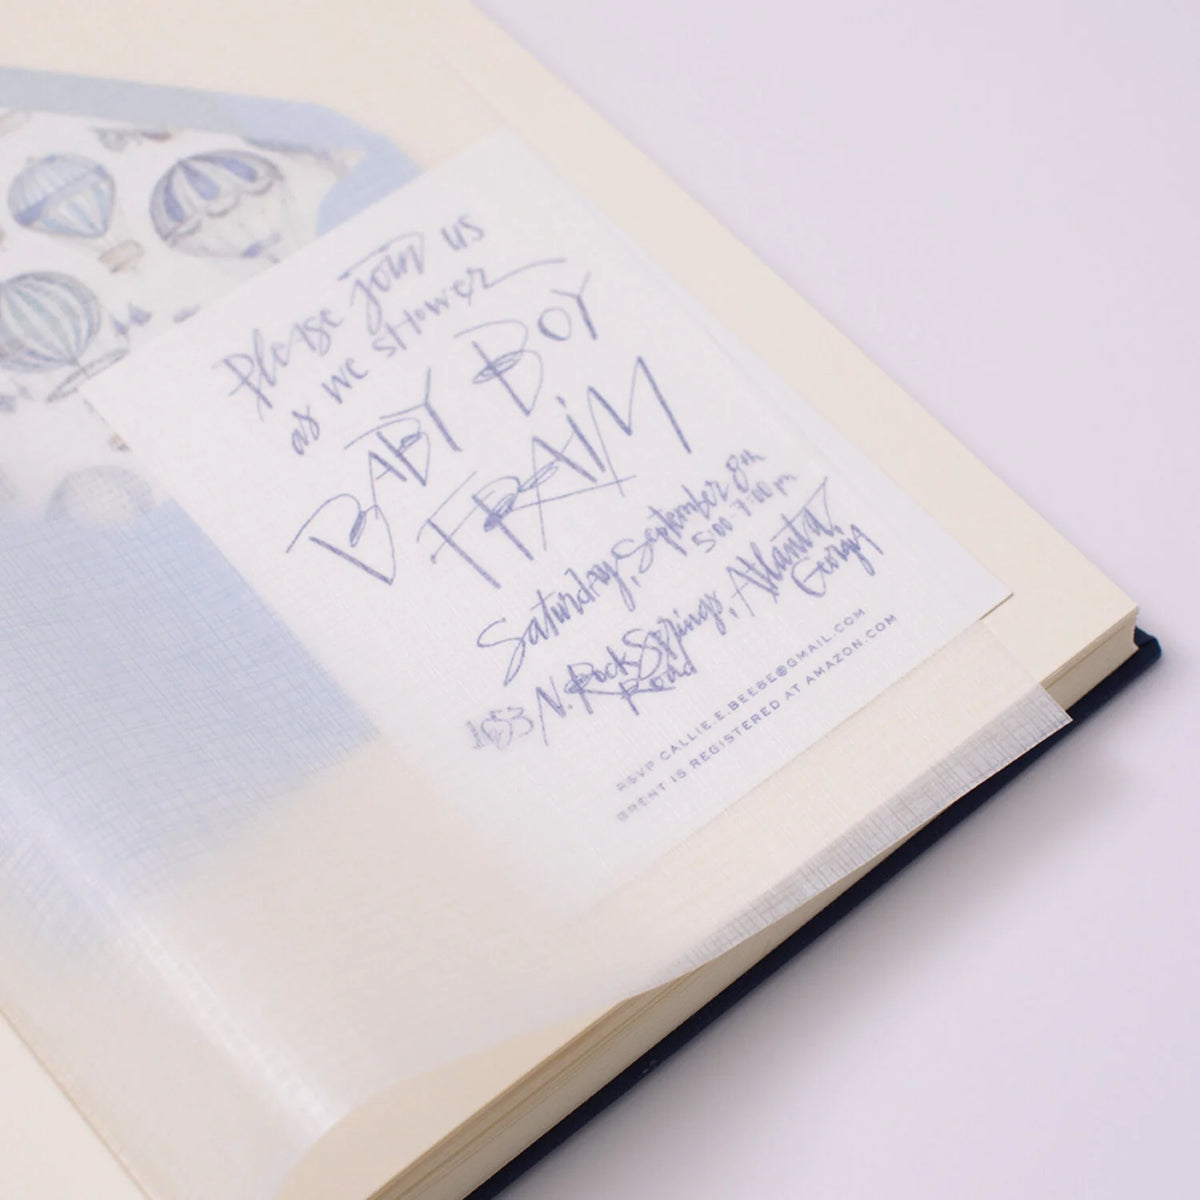 Please join us
as we shower
BABY BOY
FRAIM
Saturday, September 8th
5:00-7:00 pm
1053 N. Rock Springs, Atlanta,
Road Georgia
RSVP CALLIE.E.BEEBE@GMAIL.COM
BRENT IS REGISTERED AT AMAZON.COM